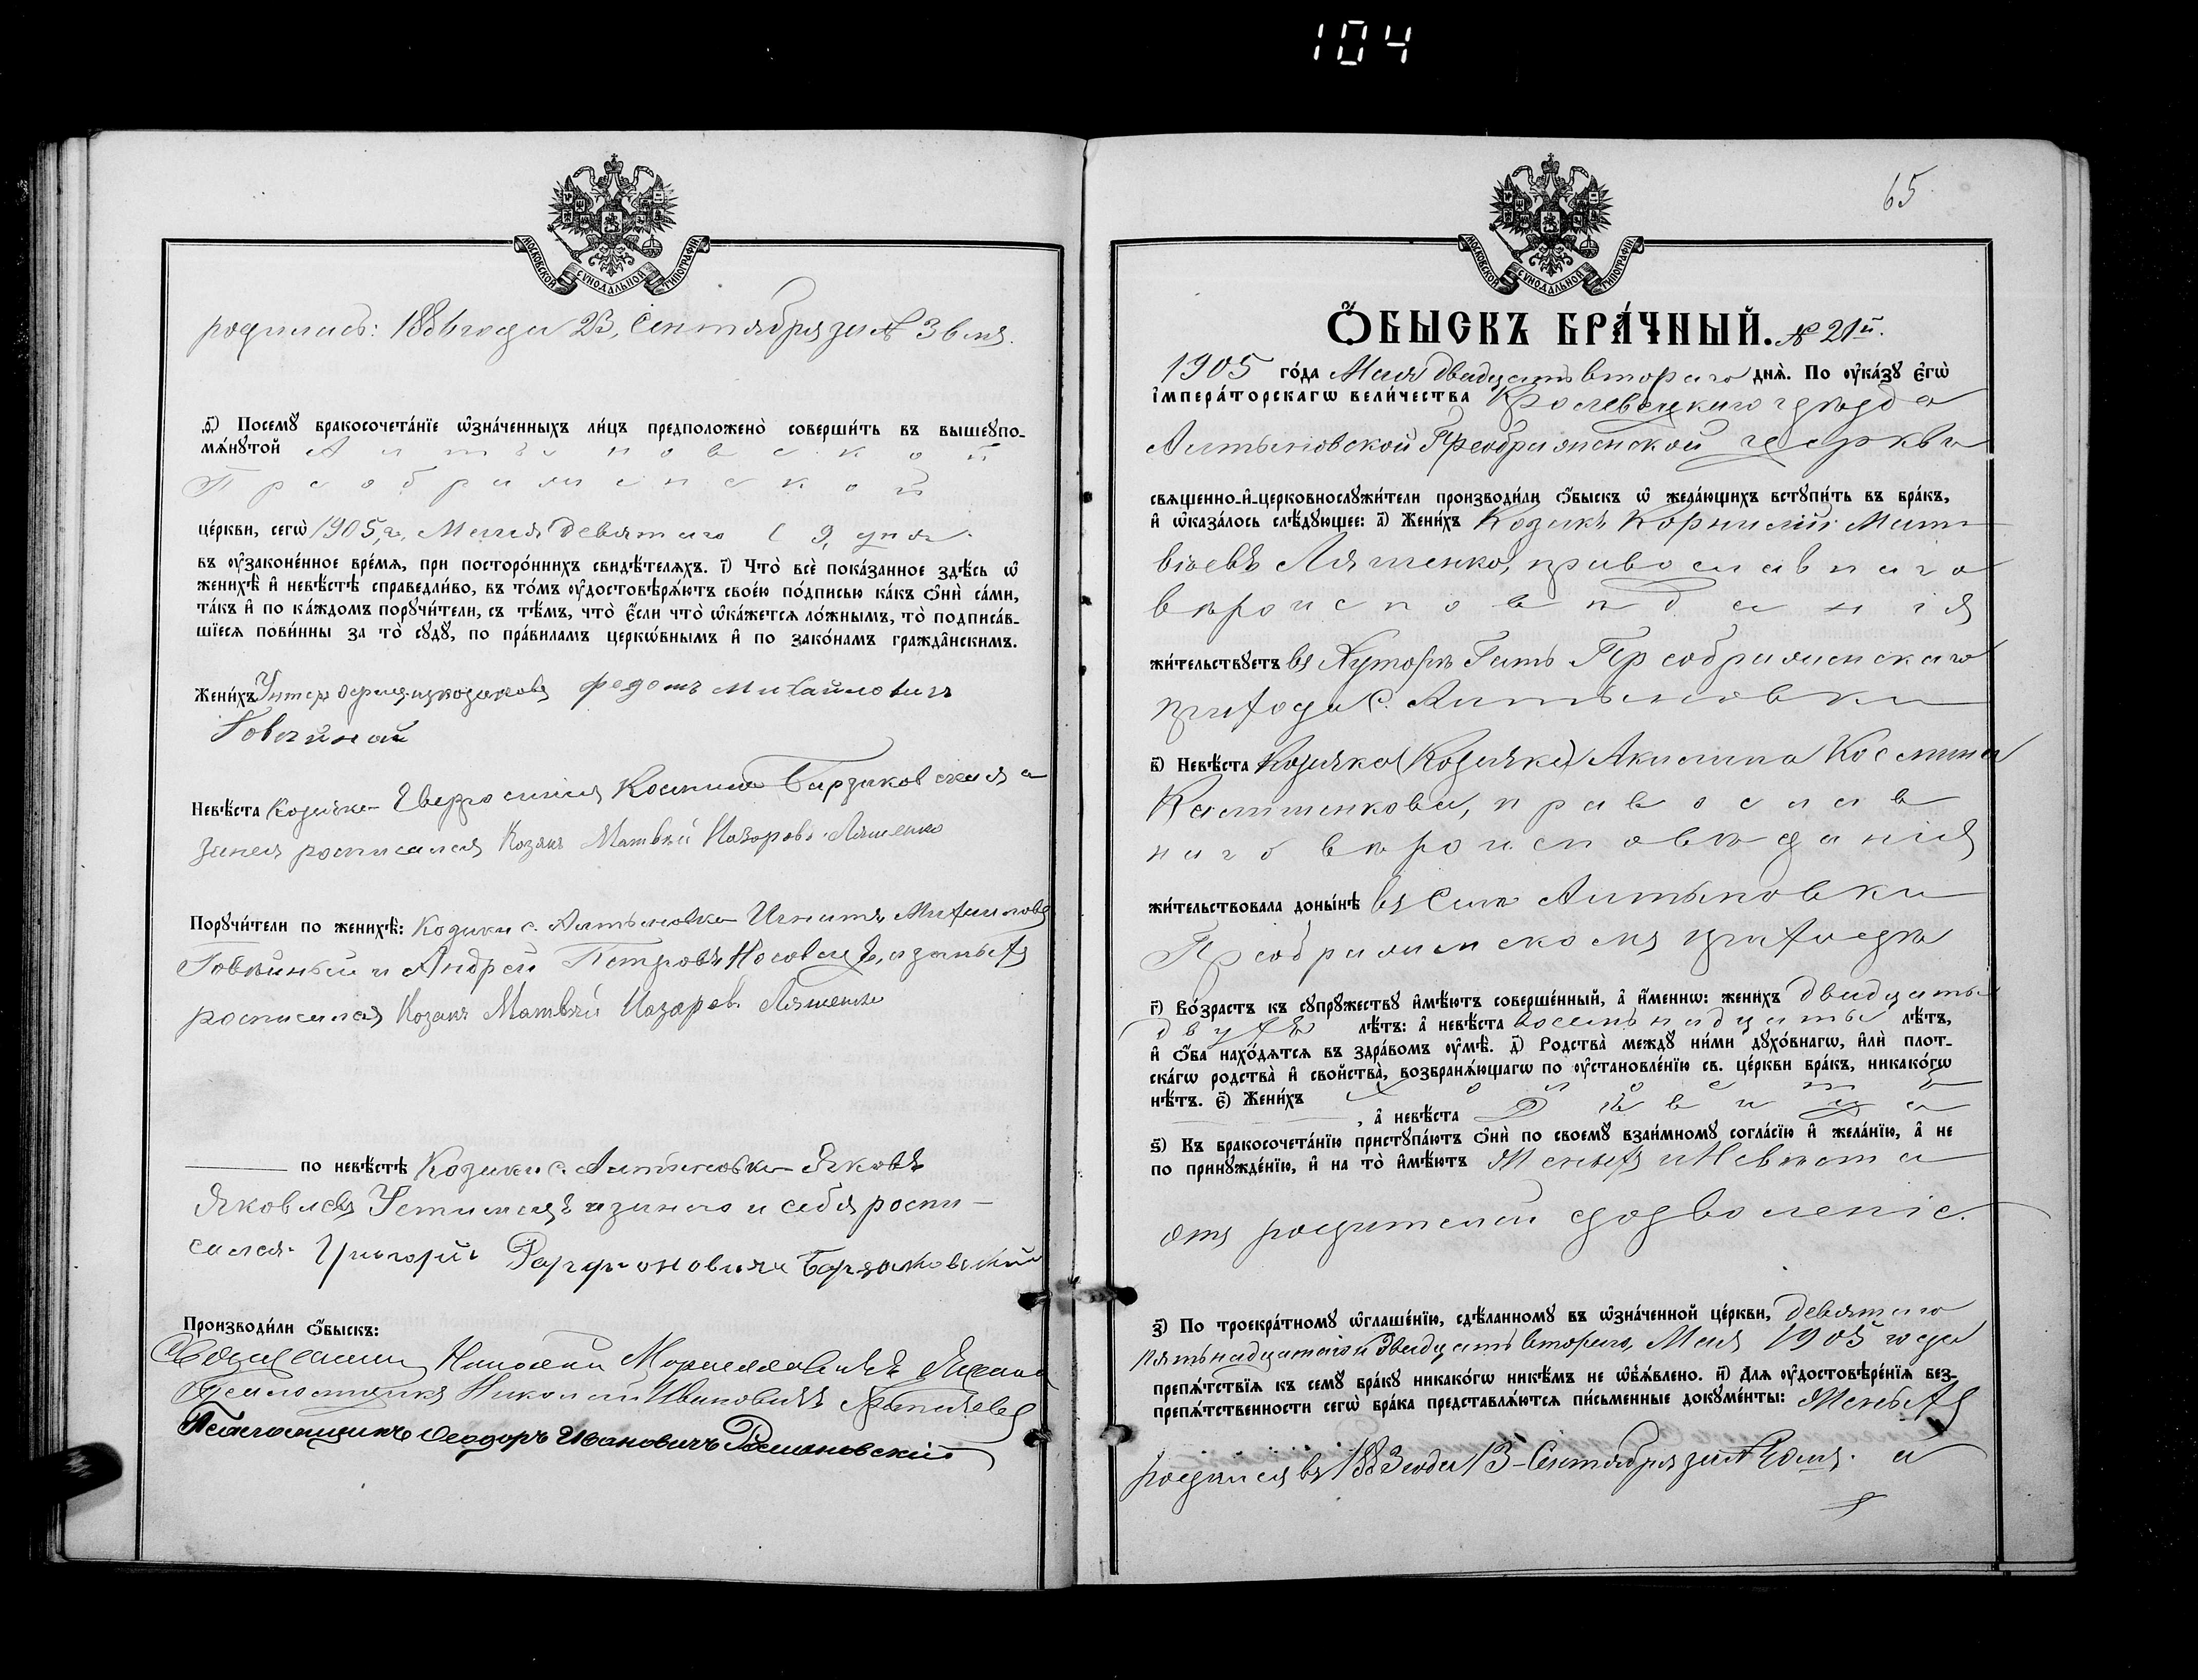 104
МОСКОВСКОЙ СѴНОДАЛЬНОЙ ТИПОГРАФІИ
родилась: 1886 года 23, Сентября за № 36 мъ.
д҃) Посемꙋ бракосочета́нїе ѡ҆зна́ченныхъ ли́цъ предположено̀ соверши́ть въ вышеꙋпо-
мѧ́нꙋтой Алтыновской
Преображенской
це́ркви, сегѡ̀ 1905, г. Маія девятаго (9, дня
въ ᲂу҆законе́нное вре́мѧ, при посторо́ннихъ свидѣ́телѧхъ. і҃) Что̀ всѐ пока́занное здѣ́сь ѡ҆
женихѣ̀ и҆ невѣ́стѣ справедли́во, въ то́мъ ᲂу҆достовѣрѧ́ютъ свое́ю по́дписью ка́къ ѻ҆нѝ са́ми,
та́къ и҆ по ка́ждомъ порꙋчи́тели, съ тѣ́мъ, что̀ є҆́сли что̀ ѡ҆ка́жетсѧ ло́жнымъ, то̀ подписа́в-
шїесѧ пови́нны за то̀ сꙋдꙋ̀, по пра́виламъ церкѡ́внымъ и҆ по зако́намъ гражда̂нскимъ.
Жени́хъ Унтер офиц. изкозаковъ федотъ михайловичъ
Говяиной
Невѣ́ста Козачка Евфросинія Косьмина Барзаковская а
занея росписался Козакъ Матвѣй Назоровъ Ляшенко
Порꙋчи́тели по женихѣ̀: Козаки с. Алтыновки Игнатъ Михаиловъ
Говяиный и Андрей Петровъ Носовецъ, азаныхъ
росписался Козакъ Матвѣй Назаров. Ляшенко
по невѣ́стѣ Козаки с. Алтыновки Яковъ
Яковлевъ Устименъ изанего и себя роспи-
сался. Григорій Парфионовичь Барзаковский
Производи́ли ѻ҆́быскъ:
Священникъ Николай
Псаломщикъ Николай Ивановичъ
Псаломщикъ Ѳеодоръ Ивановичъ Романовскій
65
МОСКОВСКОЙ СѴНОДАЛЬНОЙ ТИПОГРАФІИ
Ѻ҆́БЫСКЪ БРА́ЧНЫЙ. № 21й.
1905 го́да Маія двадцать втораго днѧ̀. По ᲂу҆ка́зꙋ є҆гѡ̀
і҆мпера́торскагѡ вели́чества Кролевецкаго уѣзда
Алтыновской Преображенской церкви
свѧщенно-и҆-церковнослꙋжи́тели производи́ли ѻ҆́быскъ ѡ҆ жела́ющихъ встꙋпи́ть въ бра́къ,
и҆ ѡ҆каза́лось слѣ́дꙋющее: а҃) Жени́хъ Козакъ Корнилій Мат-
віевъ Ляшенко, православнаго
вѣроисповѣданія
жи́тельствꙋетъ въ Хуторѣ Гать Преображенскаго
прихода с. Алтыновки
в҃) Невѣ́ста Козачка (Козачка) Акилина Космина
Калтшенкова, православ
наго вѣроисповѣданія
жи́тельствовала доны́нѣ въ Селѣ Алтыновки
Преображенскомъ приходѣ
г҃) Во́зрастъ къ сꙋпрꙋ́жествꙋ и҆мѣ́ютъ соверше́нный, а҆ и҆́меннѡ: жени́хъ двадцать
двухъ лѣ́тъ: а҆ невѣ́ста восемьнадцать лѣ́тъ,
и҆ ѻ҆́ба нахо́дѧтсѧ въ здра́вомъ ᲂу҆мѣ̀. д҃) Родства̀ междꙋ ни́ми дꙋхо́внагѡ, и҆лѝ плот-
ска́гѡ родства̀ и҆ свойства̀, возбранѧ́ющагѡ по ᲂу҆становле́нїю св. це́ркви бра́къ, никако́гѡ
нѣ́тъ. є҃) Жени́хъ холостъ
, а҆ невѣ́ста Дѣвица
ѕ҃) Къ бракосочета́нїю пристꙋпа́ютъ ѻ҆нѝ по своемꙋ̀ взаи́мномꙋ согла́сїю и҆ жела́нїю, а҆ не
по принꙋжде́нїю, и҆ на то̀ и҆мѣ́ютъ Женихъ и Невѣста
отъ родителей дозволеніе.
з҃) По троекра́тномꙋ ѡ҆глаше́нїю, сдѣ́ланномꙋ въ ѡ҆зна́ченной це́ркви, девятаго
пятьнадцатаго и двадцать втораго, Маія 1905 года
препѧ́тствїѧ къ семꙋ̀ бра́кꙋ никако́гѡ никѣ́мъ не ѡ҆б̾ѧ́влено. и҃) Длѧ̀ ᲂу҆достовѣре́нїѧ без-
препѧ́тственности сегѡ̀ бра́ка представлѧ́ютсѧ пи́сьменные докꙋме́нты: Женихъ
родился въ 1883 году 13 - Сентября за № мъ. а